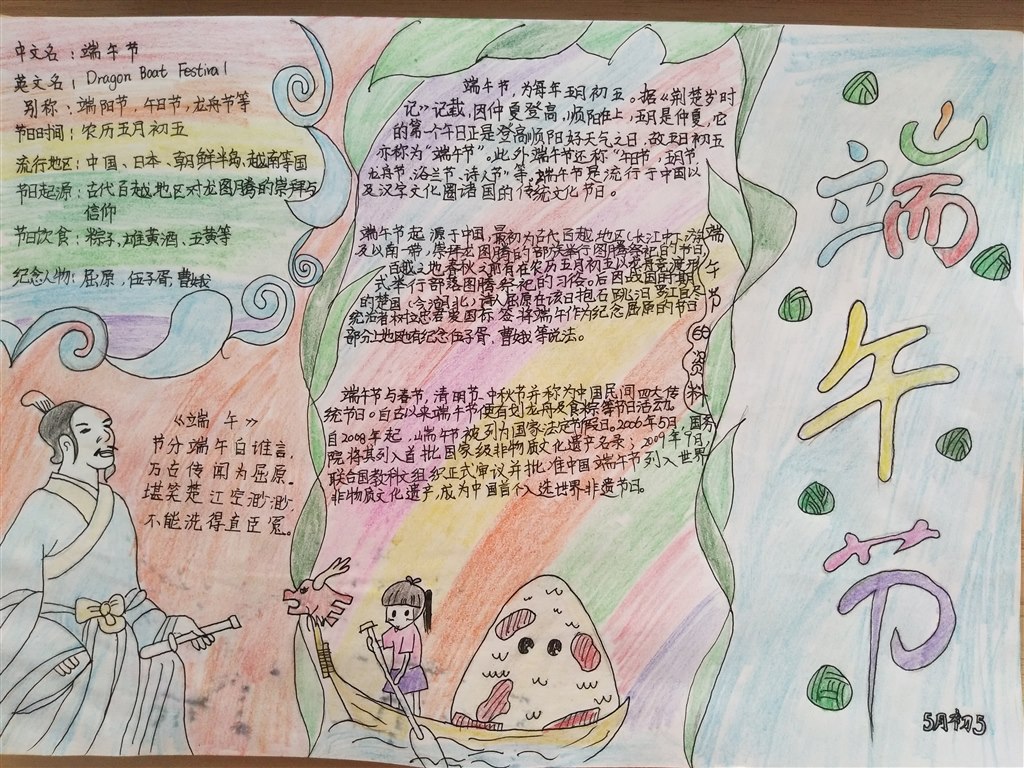 中文名：端午节
英文名：Dragon Boat Festival
别称：端阳节，午日节，龙舟节等
节日时间：农历五月初五
流行地区：中国、日本、朝鲜半岛，越南等国
节日起源：古代百越地区对龙图腾的崇拜与
信仰
节日饮食：粽子，雄黄酒，五黄等
纪念人物：屈原，伍子胥，曹娥
《端午》
节分端午自谁言，
万古传闻为屈原。
堪笑楚江空渺渺，
不能洗得直臣冤。
端午节，为每年五月初五。据《荆楚岁时
记》记载，因仲夏登高，顺阳在上，五月是仲夏，它
的第一个午日正是登高顺阳好天气之日，故五月初五
亦称为“端午节”。此外端午节还称“午日节，五月节，
龙舟节，浴兰节，诗人节”等，端午节是流行于中国以
及汉字文化圈诸国的传统文化节日。
端午节起源于中国，最初为古代百越地区（长江中下游
及以南一带，崇拜龙图腾的部族举行图腾祭祀的节日，
百越之地春秋之前有在农历五月初五以龙舟竞渡形
式举行部落图腾祭祀的习俗。后因战国时期
的楚国（今湖北）诗人屈原在该日抱石跳汨罗江自尽
统治者树立忠君爱国标签将端午作为纪念屈原的节日
部分地区也有纪念伍子胥，曹娥等说法。
端午节与春节，清明节，中秋节并称为中国民间四大传
统节日。自古以来端午节便有划龙舟及食粽等节日活动
自2008年起，端午节被列为国家法定节假日。2006年5月，国务
院将其列入首批国家级非物质文化遗产名录；2009年9月，
联合国教科文组织正式审议并批准中国端午节列入世界
非物质文化遗产，成为中国首个入选世界非遗节日。
端午节的资料
端午节
5月初5